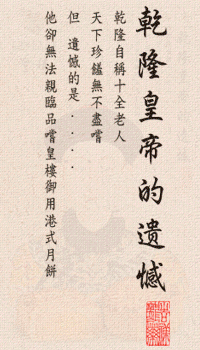 乾隆皇帝的遺憾
乾隆自稱十全老人
天下珍饈無不盡嚐
但 遺憾的是．．．．
他卻無法親臨品嚐皇樓御用港式月餅